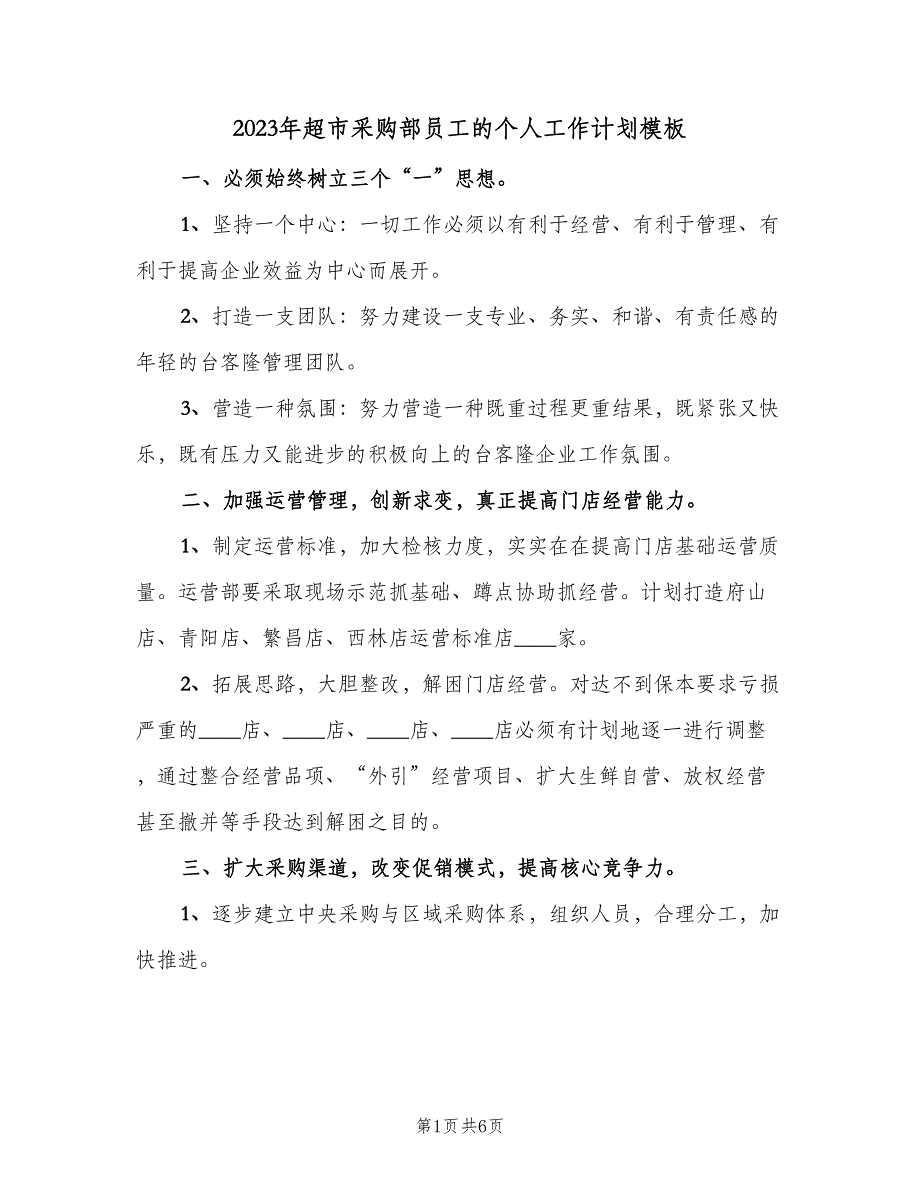 2023年超市采购部员工的个人工作计划模板
一、必须始终树立三个“一”思想。
1、坚持一个中心：一切工作必须以有利于经营、有利于管理、有
利于提高企业效益为中心而展开。
2、打造一支团队：努力建设一支专业、务实、和谐、有责任感的
年轻的台客隆管理团队。
3、营造一种氛围：努力营造一种既重过程更重结果，既紧张又快
乐，既有压力又能进步的积极向上的台客隆企业工作氛围。
二、加强运营管理，创新求变，真正提高门店经营能力。
1、制定运营标准，加大检核力度，实实在在提高门店基础运营质
量。运营部要采取现场示范抓基础、蹲点协助抓经营。计划打造府山
店、青阳店、繁昌店、西林店运营标准店____家。
2、拓展思路，大胆整改，解困门店经营。对达不到保本要求亏损
严重的____店、____店、____店、____店必须有计划地逐一进行调整
，通过整合经营品项、“外引”经营项目、扩大生鲜自营、放权经营
甚至撤并等手段达到解困之目的。
三、扩大采购渠道，改变促销模式，提高核心竞争力。
1、逐步建立中央采购与区域采购体系，组织人员，合理分工，加
快推进。
第1页共6页